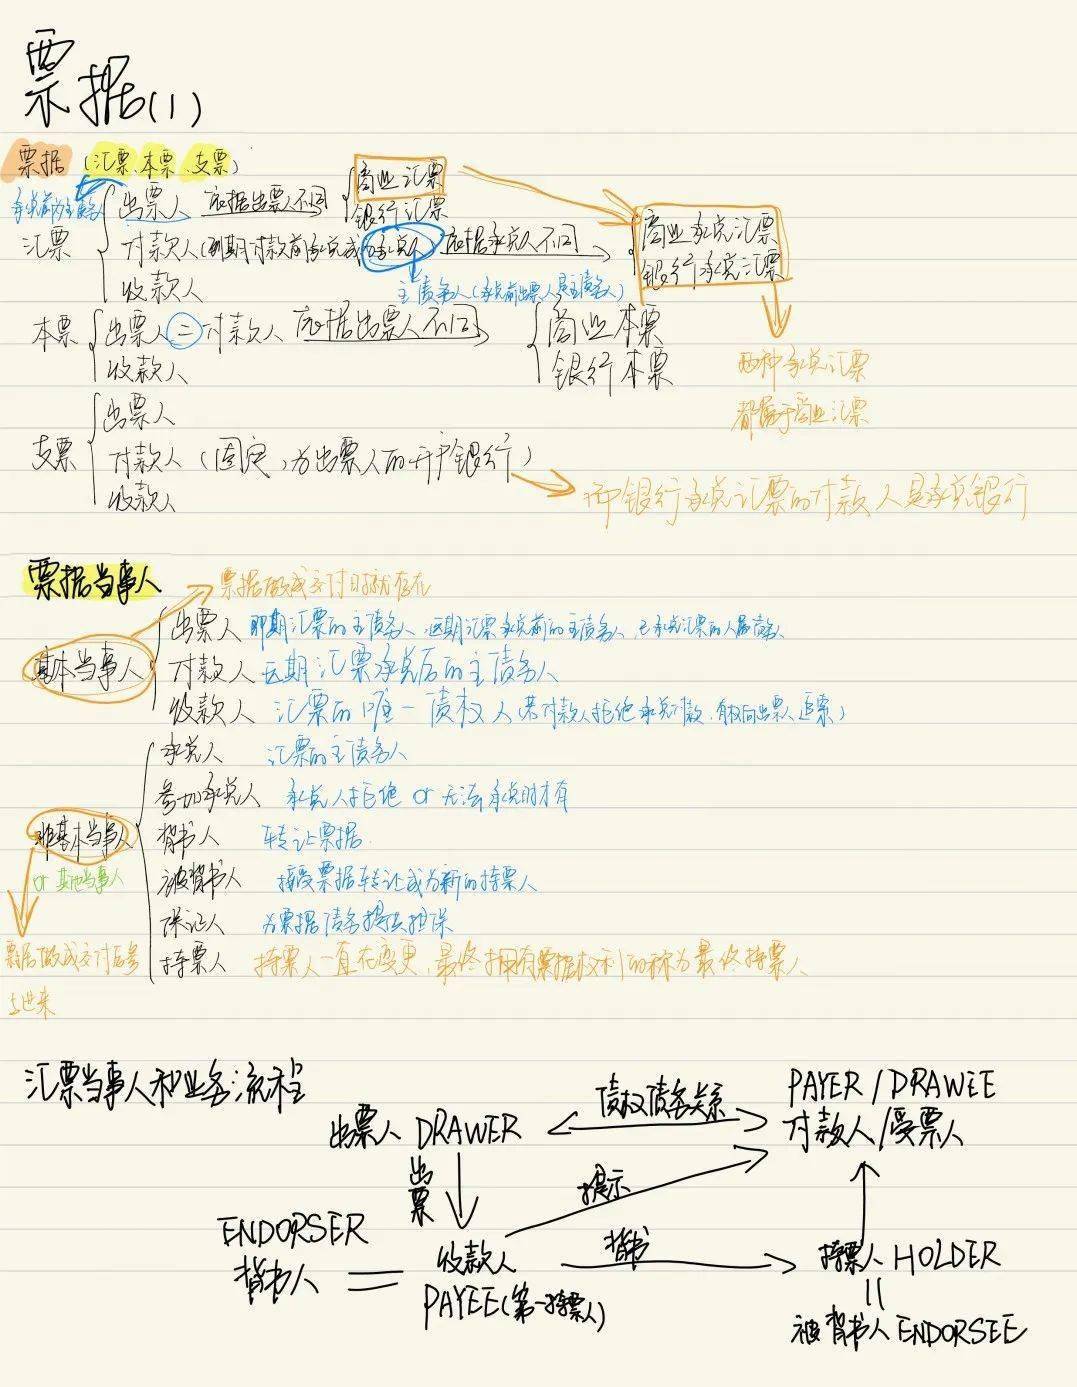 票据(1)
票据 (汇票、本票、支票)
承兑前为主债务人
汇票
出票人 依据出票人不同
商业汇票
银行汇票
付款人(到期付款前承兑成为承兑人) 依据承兑人不同
商业承兑汇票
银行承兑汇票
收款人
主债务人(承兑前出票人是主债务人)
本票
出票人=付款人 依据出票人不同
收款人
商业本票
银行本票
两种承兑汇票
都属于商业汇票
支票
出票人
付款人(固定,为出票人的开户银行)
收款人
而银行承兑汇票的付款人是承兑银行
票据当事人
票据做成交付时就存在
基本当事人
出票人 即期汇票的主债务人、远期汇票承兑前的主债务人、已承兑汇票的 债务人
付款人 远期汇票承兑后的主债务人
收款人 汇票的唯一债权人 若付款人拒绝承兑付款,有权向出票人追索)
非基本当事人
or 其他当事人
票据做成交付后参
与进来
承兑人 汇票的主债务人
参加承兑人 承兑人拒绝 or 无法承兑时才有
背书人 转让票据
被背书人 接受票据转让成为新的持票人
保证人 为票据债务提供担保
持票人 持票人一直在变更,最终拥有票据权利的称为最终持票人
汇票当事人和业务流程
出票人 DRAWER
债权债务关系
PAYER/DRAWEE
付款人/受票人
出票
提示
ENDORSER
背书人 =
收款人
PAYEE(第一持票人)
背书
持票人 HOLDER
=
被背书人 ENDORSEE